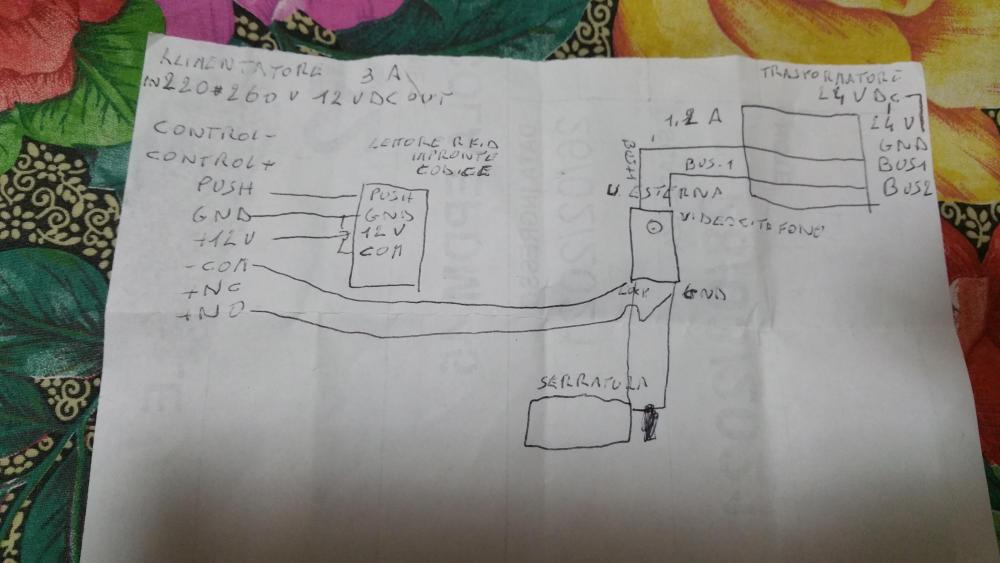 ALIMENTATORE 3 A
IN 220 260 V 12 VDC OUT
CONTROL-
CONTROL+
PUSH
GND
+12V
-COM
+NC
+NO
LETTORE RFID
IMPRONTE
CODICE
PUSH
GND
12 V
COM
TRASFORMATORE
24 VDC
24 V
GND
BUS1
BUS2
1,2 A
BUS+1
BUS-1
U ESTERNA
VIDEOCITOFONO
LOCK GND
SERRATURA